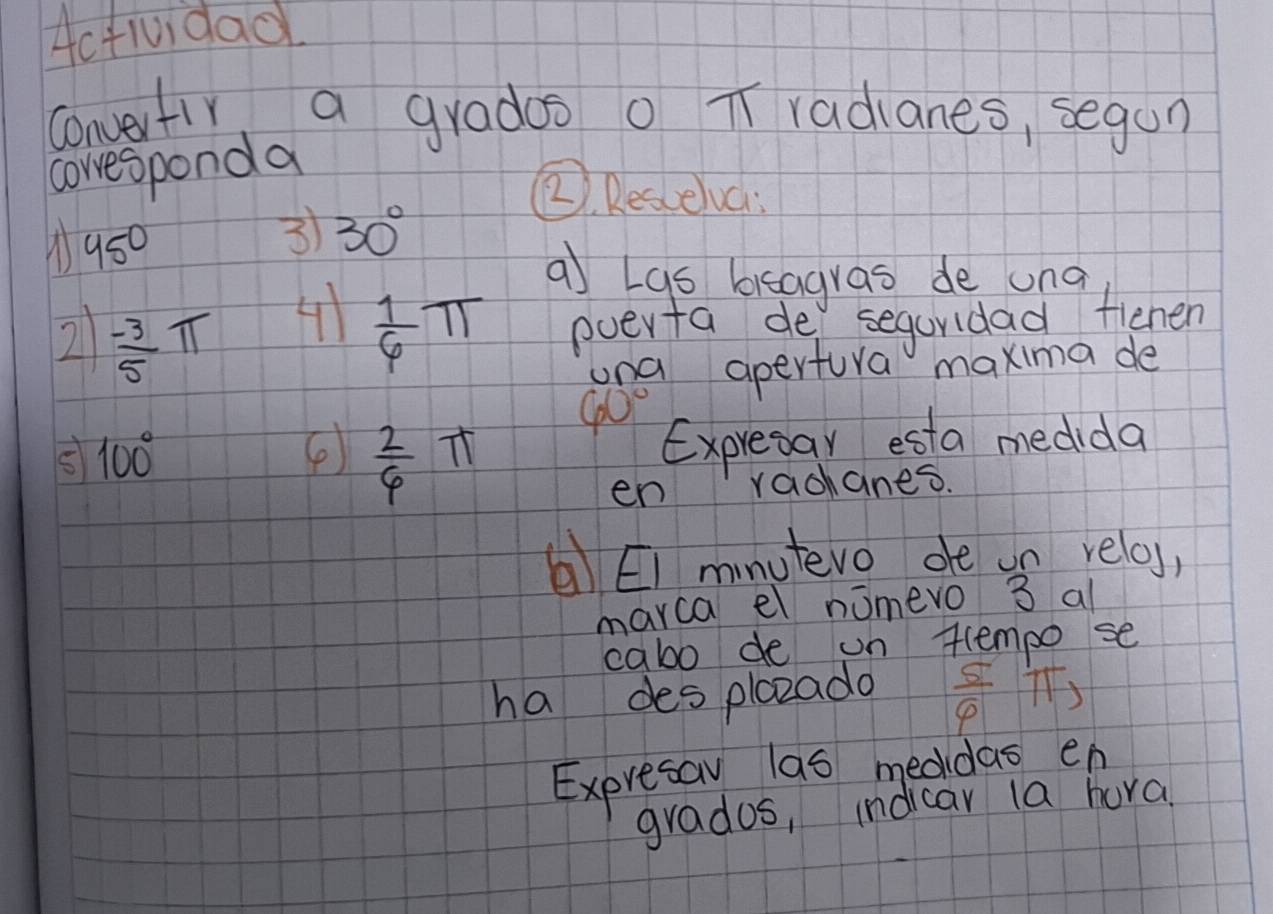 Actividad.
Convertir a grados o π radianes, segun
corresponda
1) 450
3) 30°
2) -3/5 π
4) 1/6 π
5) 100°
6) 2/6 π
②. Resuelva:
a) Las bisagras de una
puerta de seguridad tienen
una apertura maxima de
60°
Expresar esta medida
en radianes.
b) El minutero de un reloj,
marca el número 3 al
cabo de un tiempo se
ha desplazado 5/6 π,
Expresar las medidas en
grados, indicar la hora.